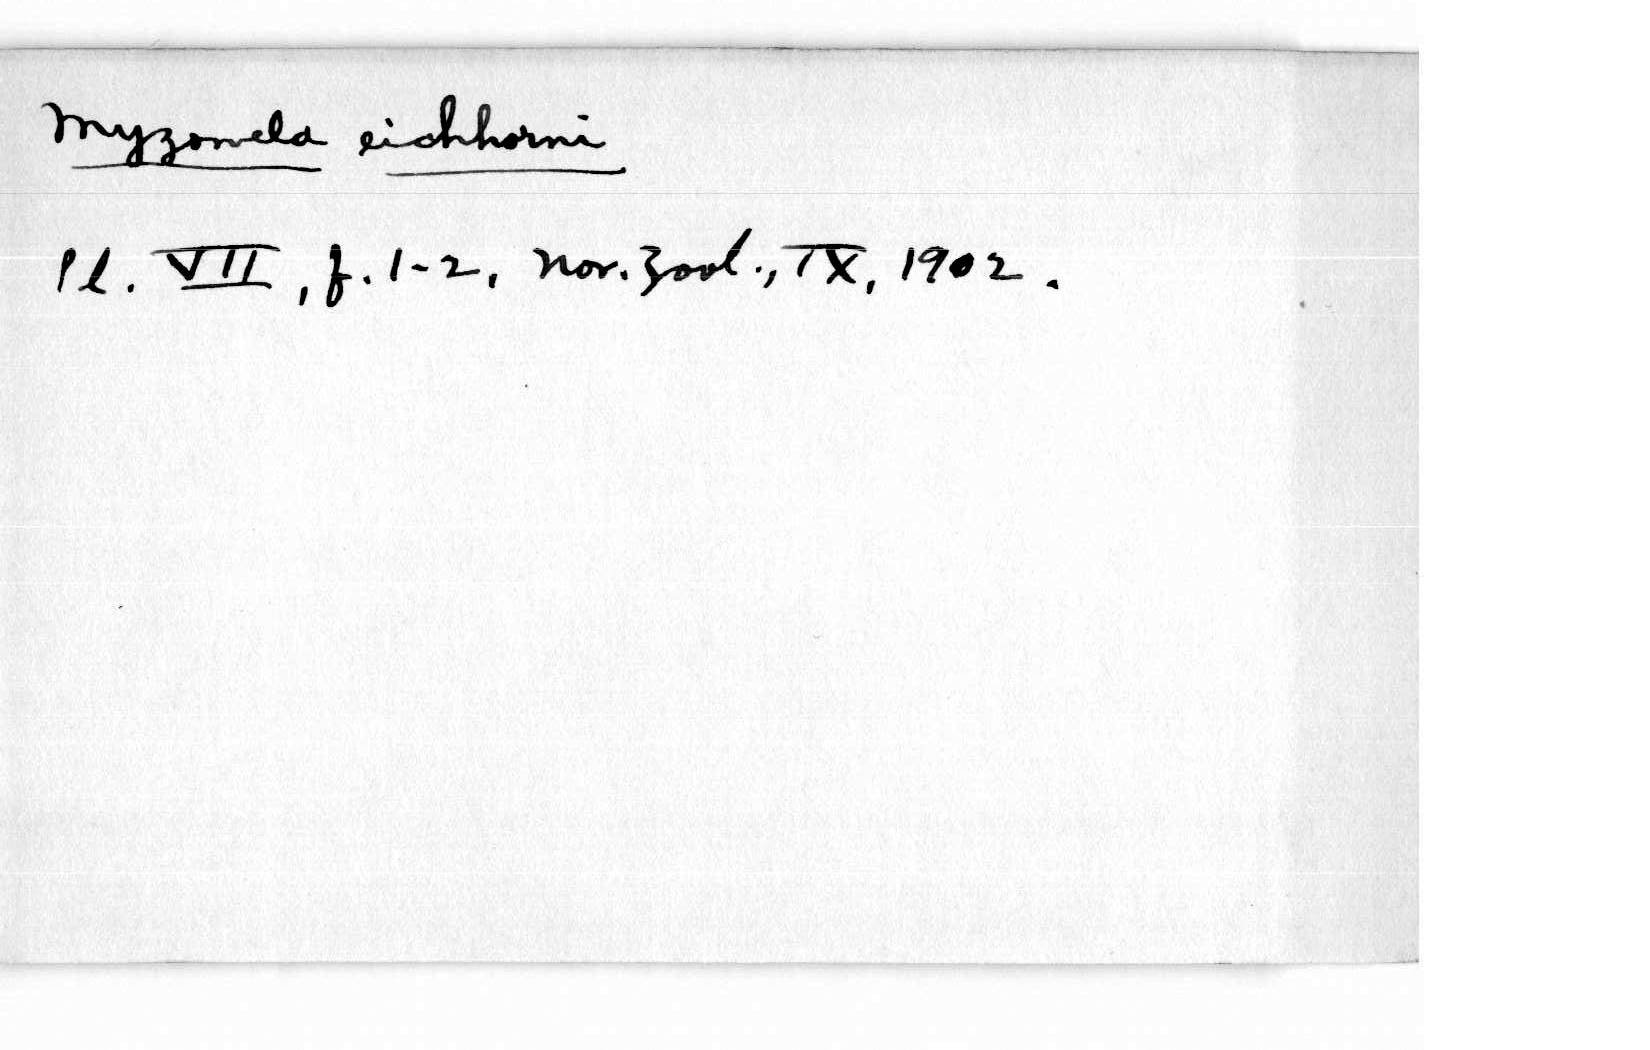 Myzomela eichhorni
Pl. VII, f. 1-2, Nov. Zool., IX, 1902.